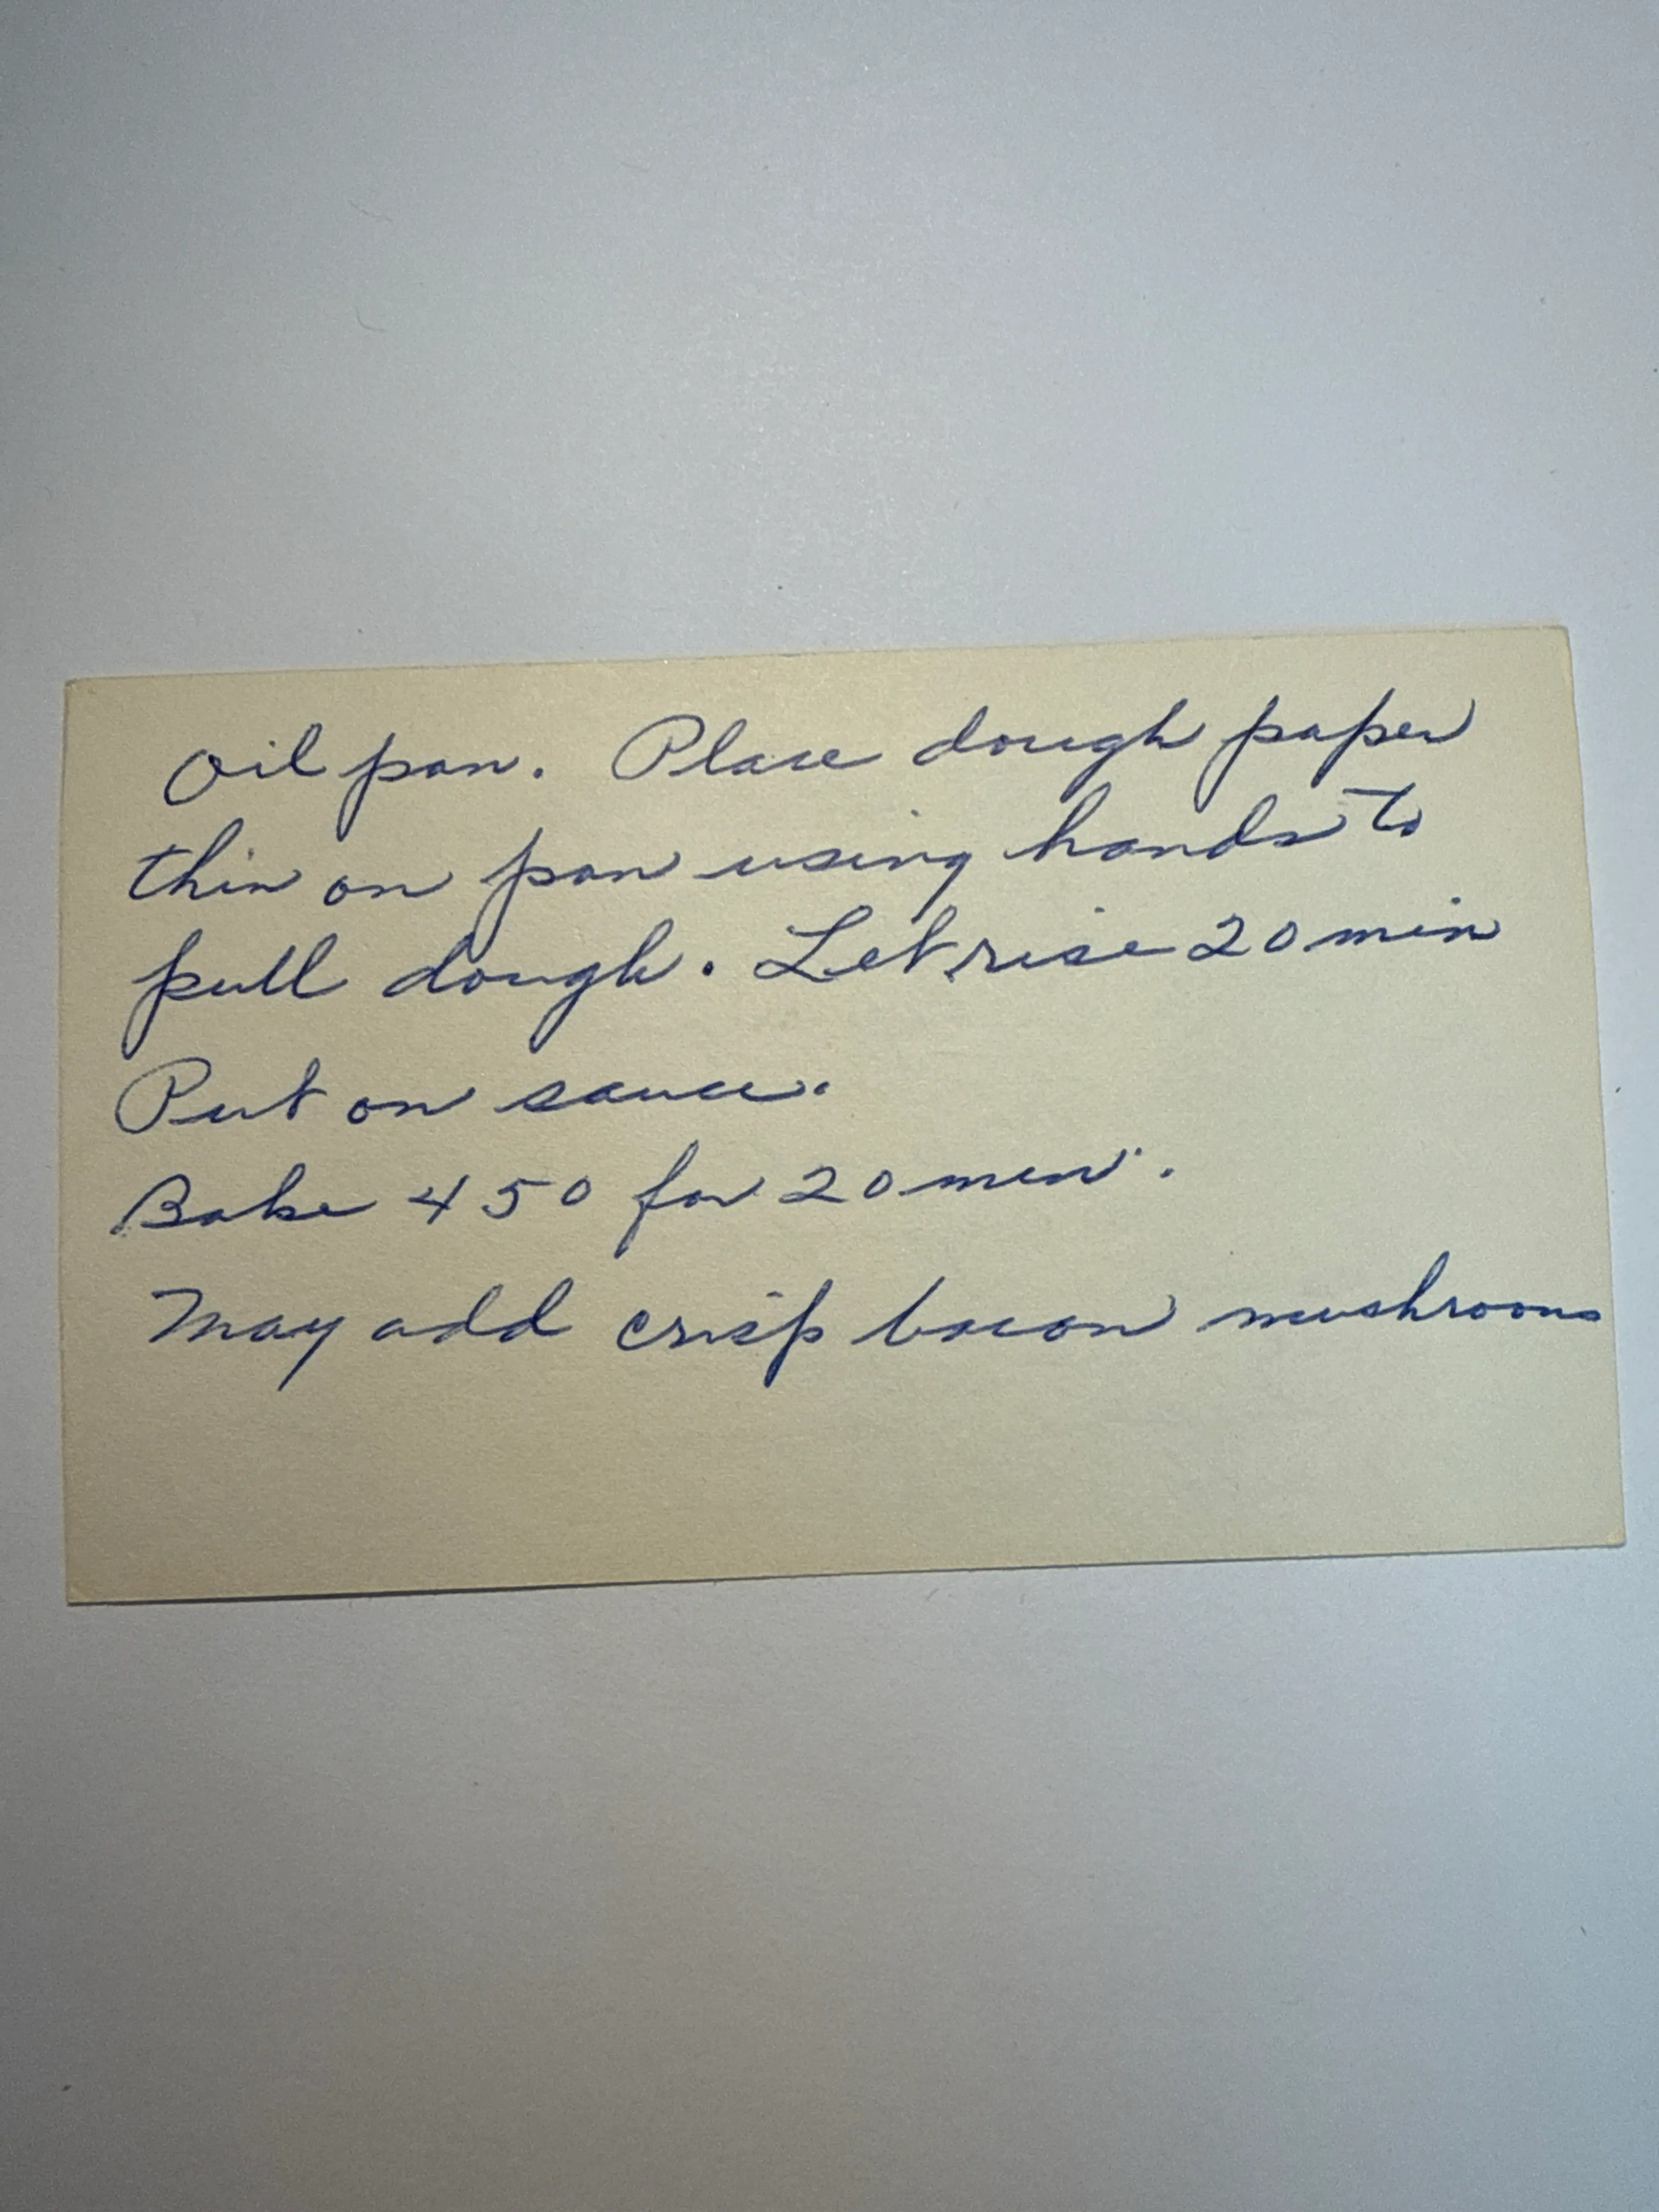 Oil pan. Place dough paper
thin on pan using hands to
pull dough. Let rise 20 min
Put on sauce.
Bake 450 for 20 min.
May add crisp bacon mushrooms